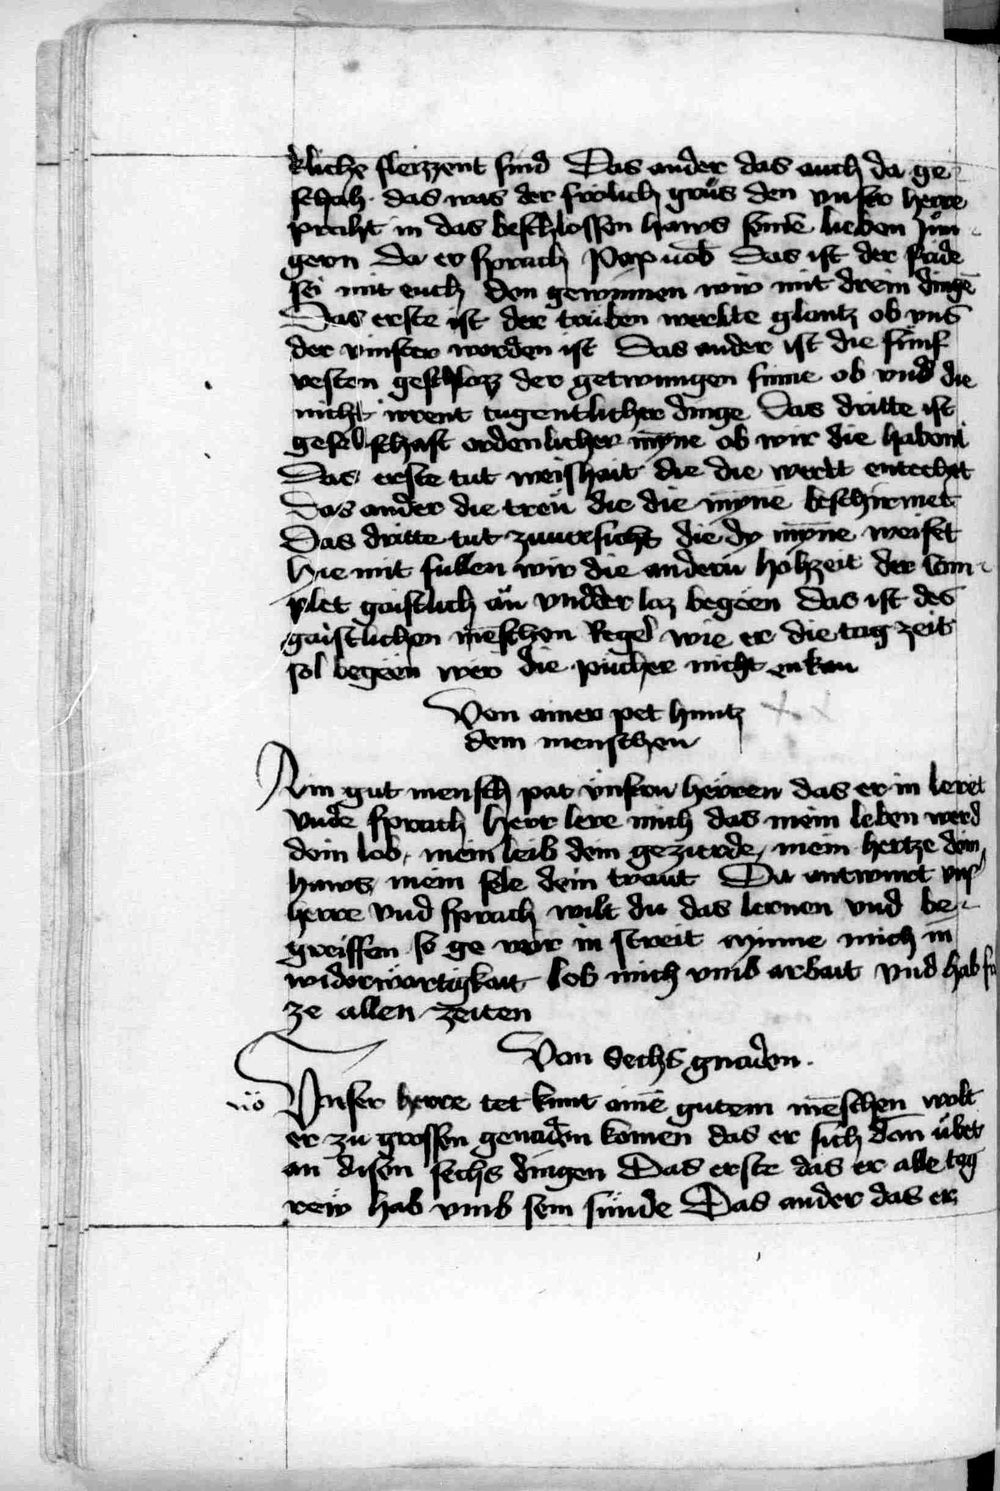 kliche fleizzent sind Das ander das auch da ge-
schah · das was der frölich grüs den vnser herre
praht in das beschlossen haws seinē lieben Jün-
gern da er sprach Pax uob Das ist der fride
sei mit euch den gewinnen wir mit drein dingē
Das erste ist der trüben werlte glantz ob vns
der vinster worden ist Das ander ist die fünf
vesten geschlozz der getwungen sinne ob vnd die
nicht irrent tugentlicher dinge Das dritte ist
geselschaft ordenlicher mȳne ob wir die habent
Das erste tut weishait die die werlt entecket
Das ander die treü die die mȳne beschirmet
Das dritte tut zuuersicht die dy mȳne weiset
Hie mit süllen wir die andern hohzeit der Com-
plet gaistlich an vndder laz begeen Das ist des
gaistlichen mēschen Regel wie er die tag zeit
sol begeen wer die pücher nicht enkan
Von ainer pet huntz
dem menschen
Ain gut mensch pat vnsern herren das er in leret
vnde sprach herr lere mich das mein leben werd
dein lob, mein leib dein gezierde, mein hertze dein
haws mein sele dein traut Da antwurt vnser
herre vnd sprach wilt du das lernen vnd be-
greiffen so ge vor in streit mȳnne mich in
widerwartigkait lob mich vmb arbait vnd hab
ze allen zeiten
Von Sechs gnaden.
Vnser herre tet kunt ainē gutem mēschen wolt
er zu grossen genaden komen das er sich dan übet
an disen sechs dingen Das erste das er alle tag
rew hab vmb sein sünde Das ander das er